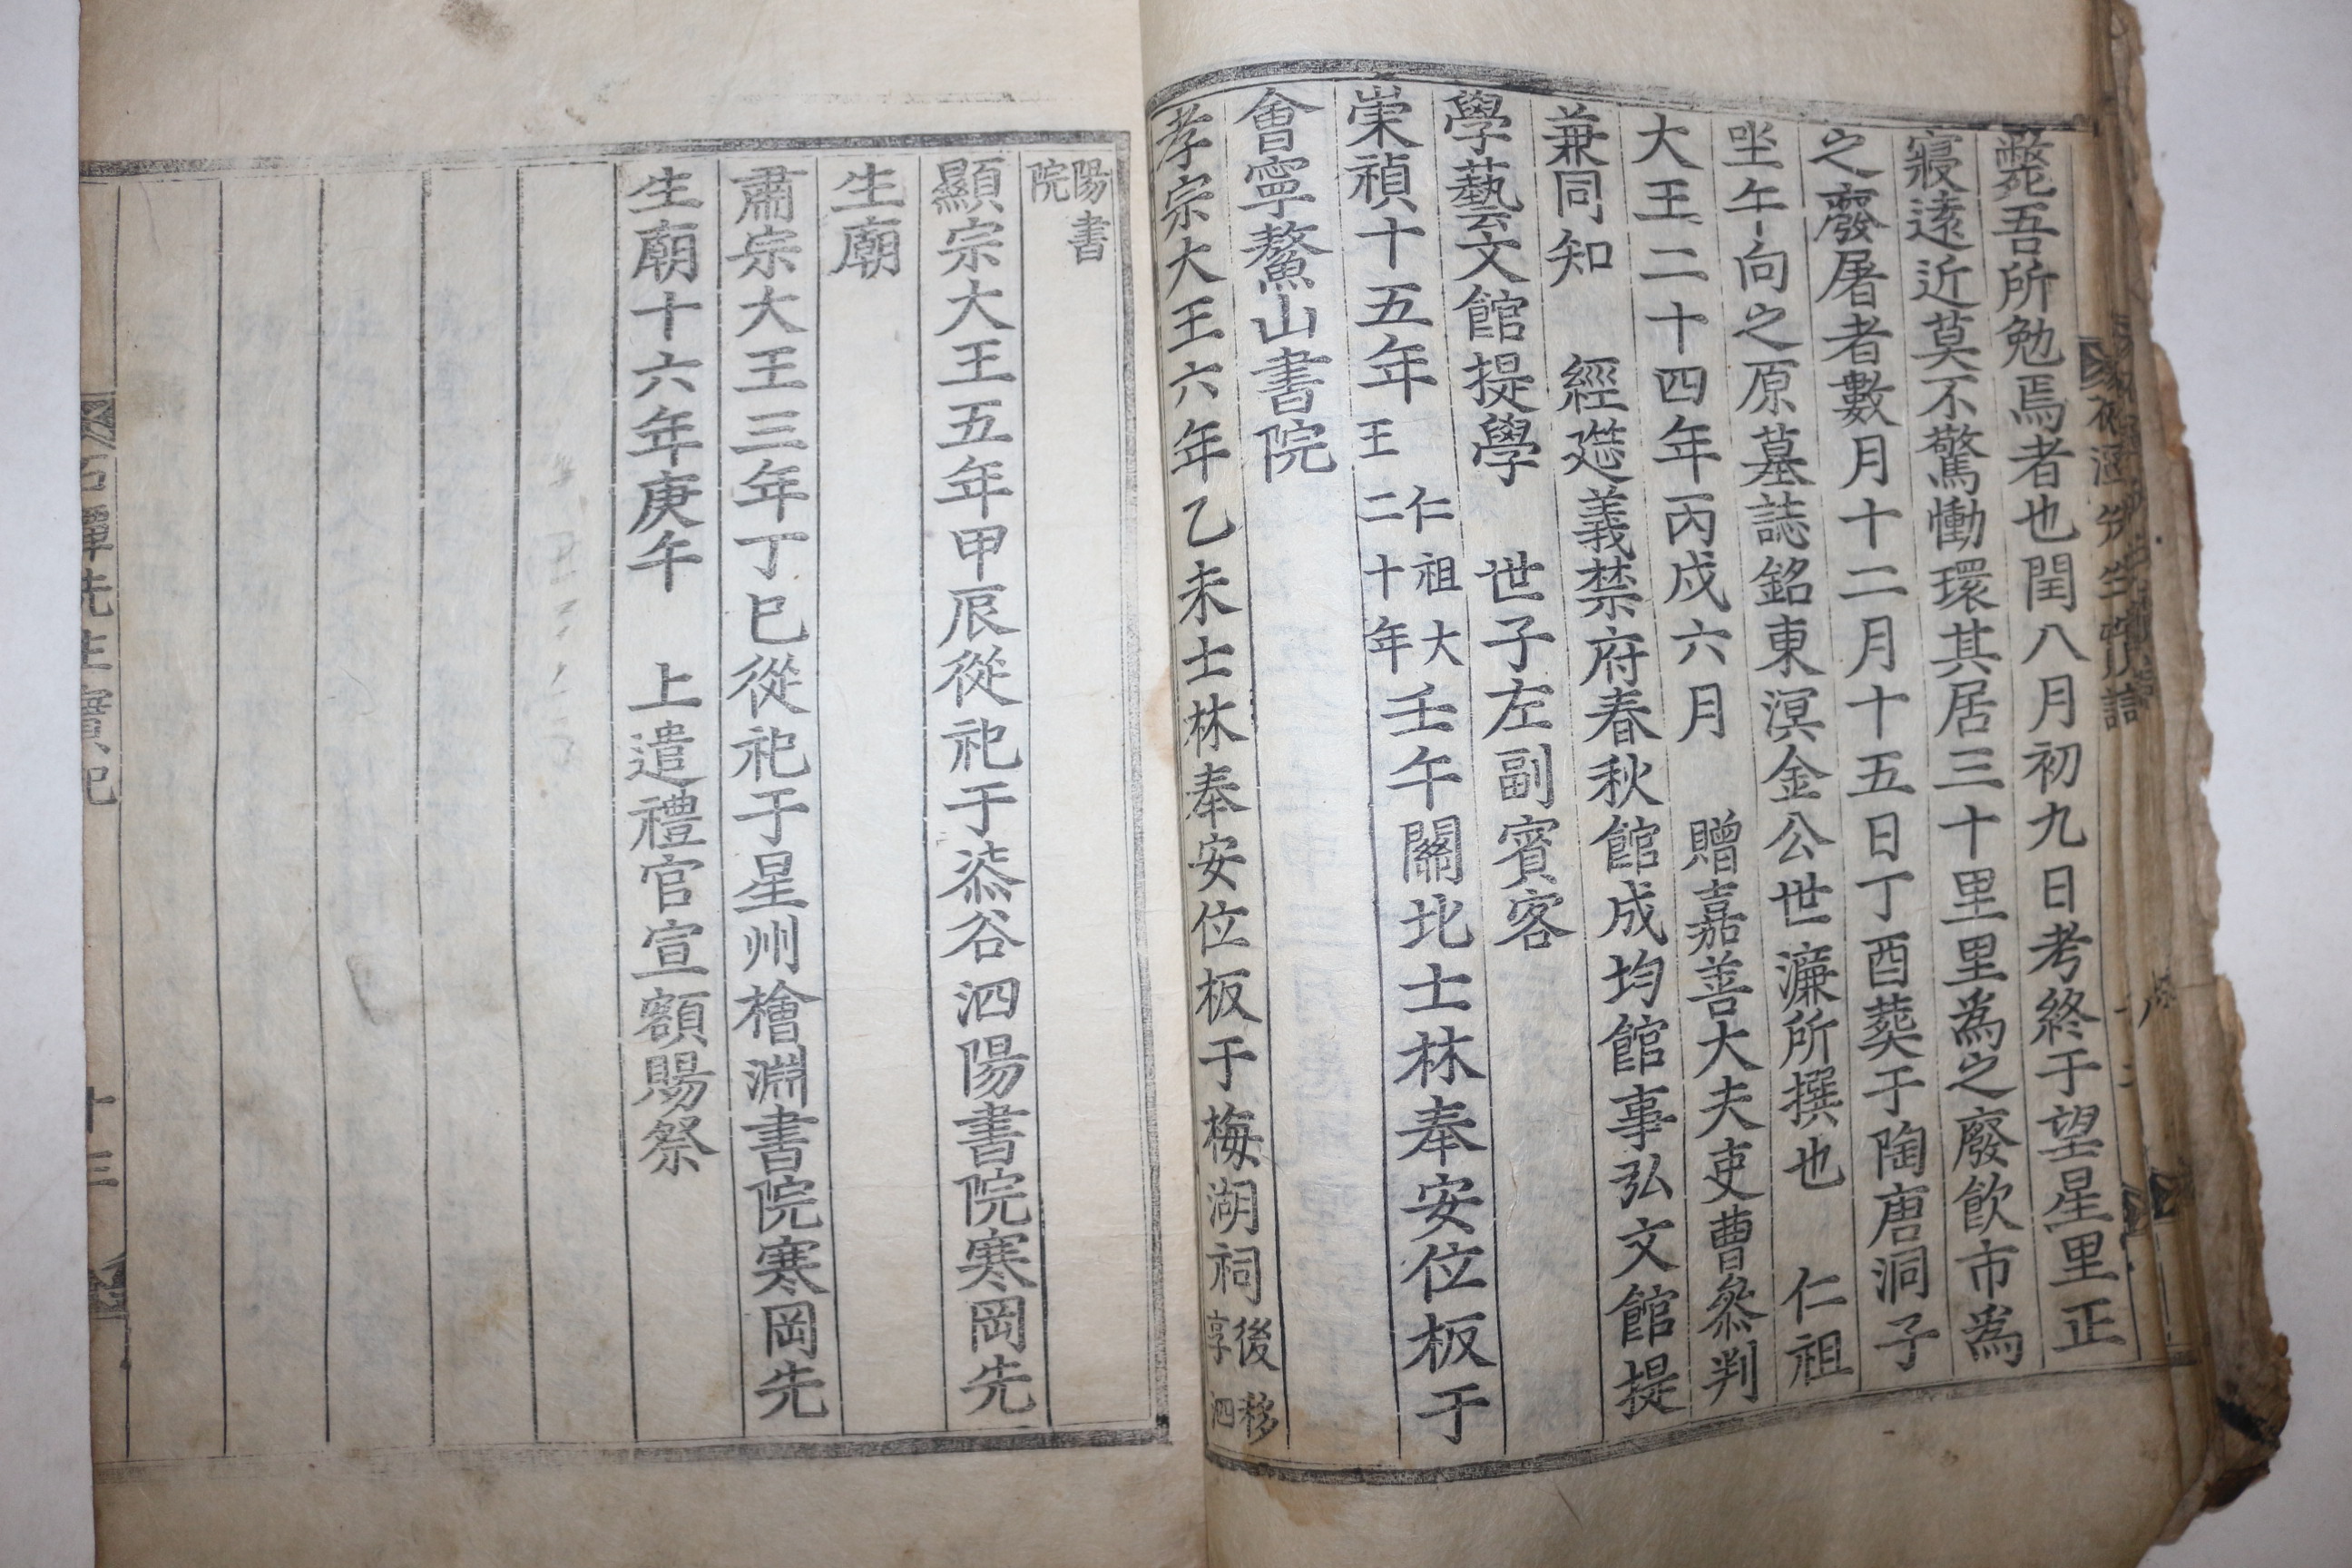 斃吾所勉焉者也閏八月初九日考終于望星里正
寢遠近莫不驚慟環其居三十里里爲之廢飮市爲
之廢屠者數月十二月十五日丁酉葬于陶唐洞子
坐午向之原墓誌銘東溟金公世濂所撰也 仁祖
大王二十四年丙戌六月 贈嘉善大夫吏曹叅判
兼同知 經筵義禁府春秋館成均館事弘文館提
學藝文館提學 世子左副賓客
崇禎十五年仁祖大王二十年壬午關北士林奉安位板于
會寧鰲山書院
孝宗大王六年乙未士林奉安位板于梅湖祠後移享泗
陽書院
顯宗大王五年甲辰從祀于㳟谷泗陽書院寒岡先
生廟
肅宗大王三年丁巳從祀于星州檜淵書院寒岡先
生廟十六年庚午 上遣禮官宣額賜祭
石潭先生實記
十三